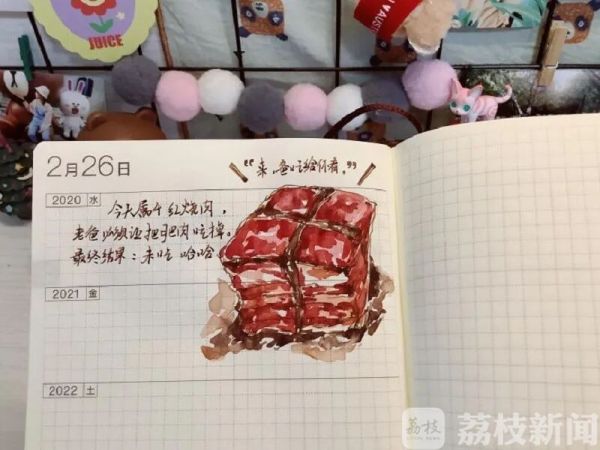 JUICE
2月26日
"来,爸吃给你看。"
2020 水
今天属于红烧肉,
老爸
把肥肉吃掉。
最终结果:未吃 哈哈
2021 金
2022 土
荔枝
荔枝新闻